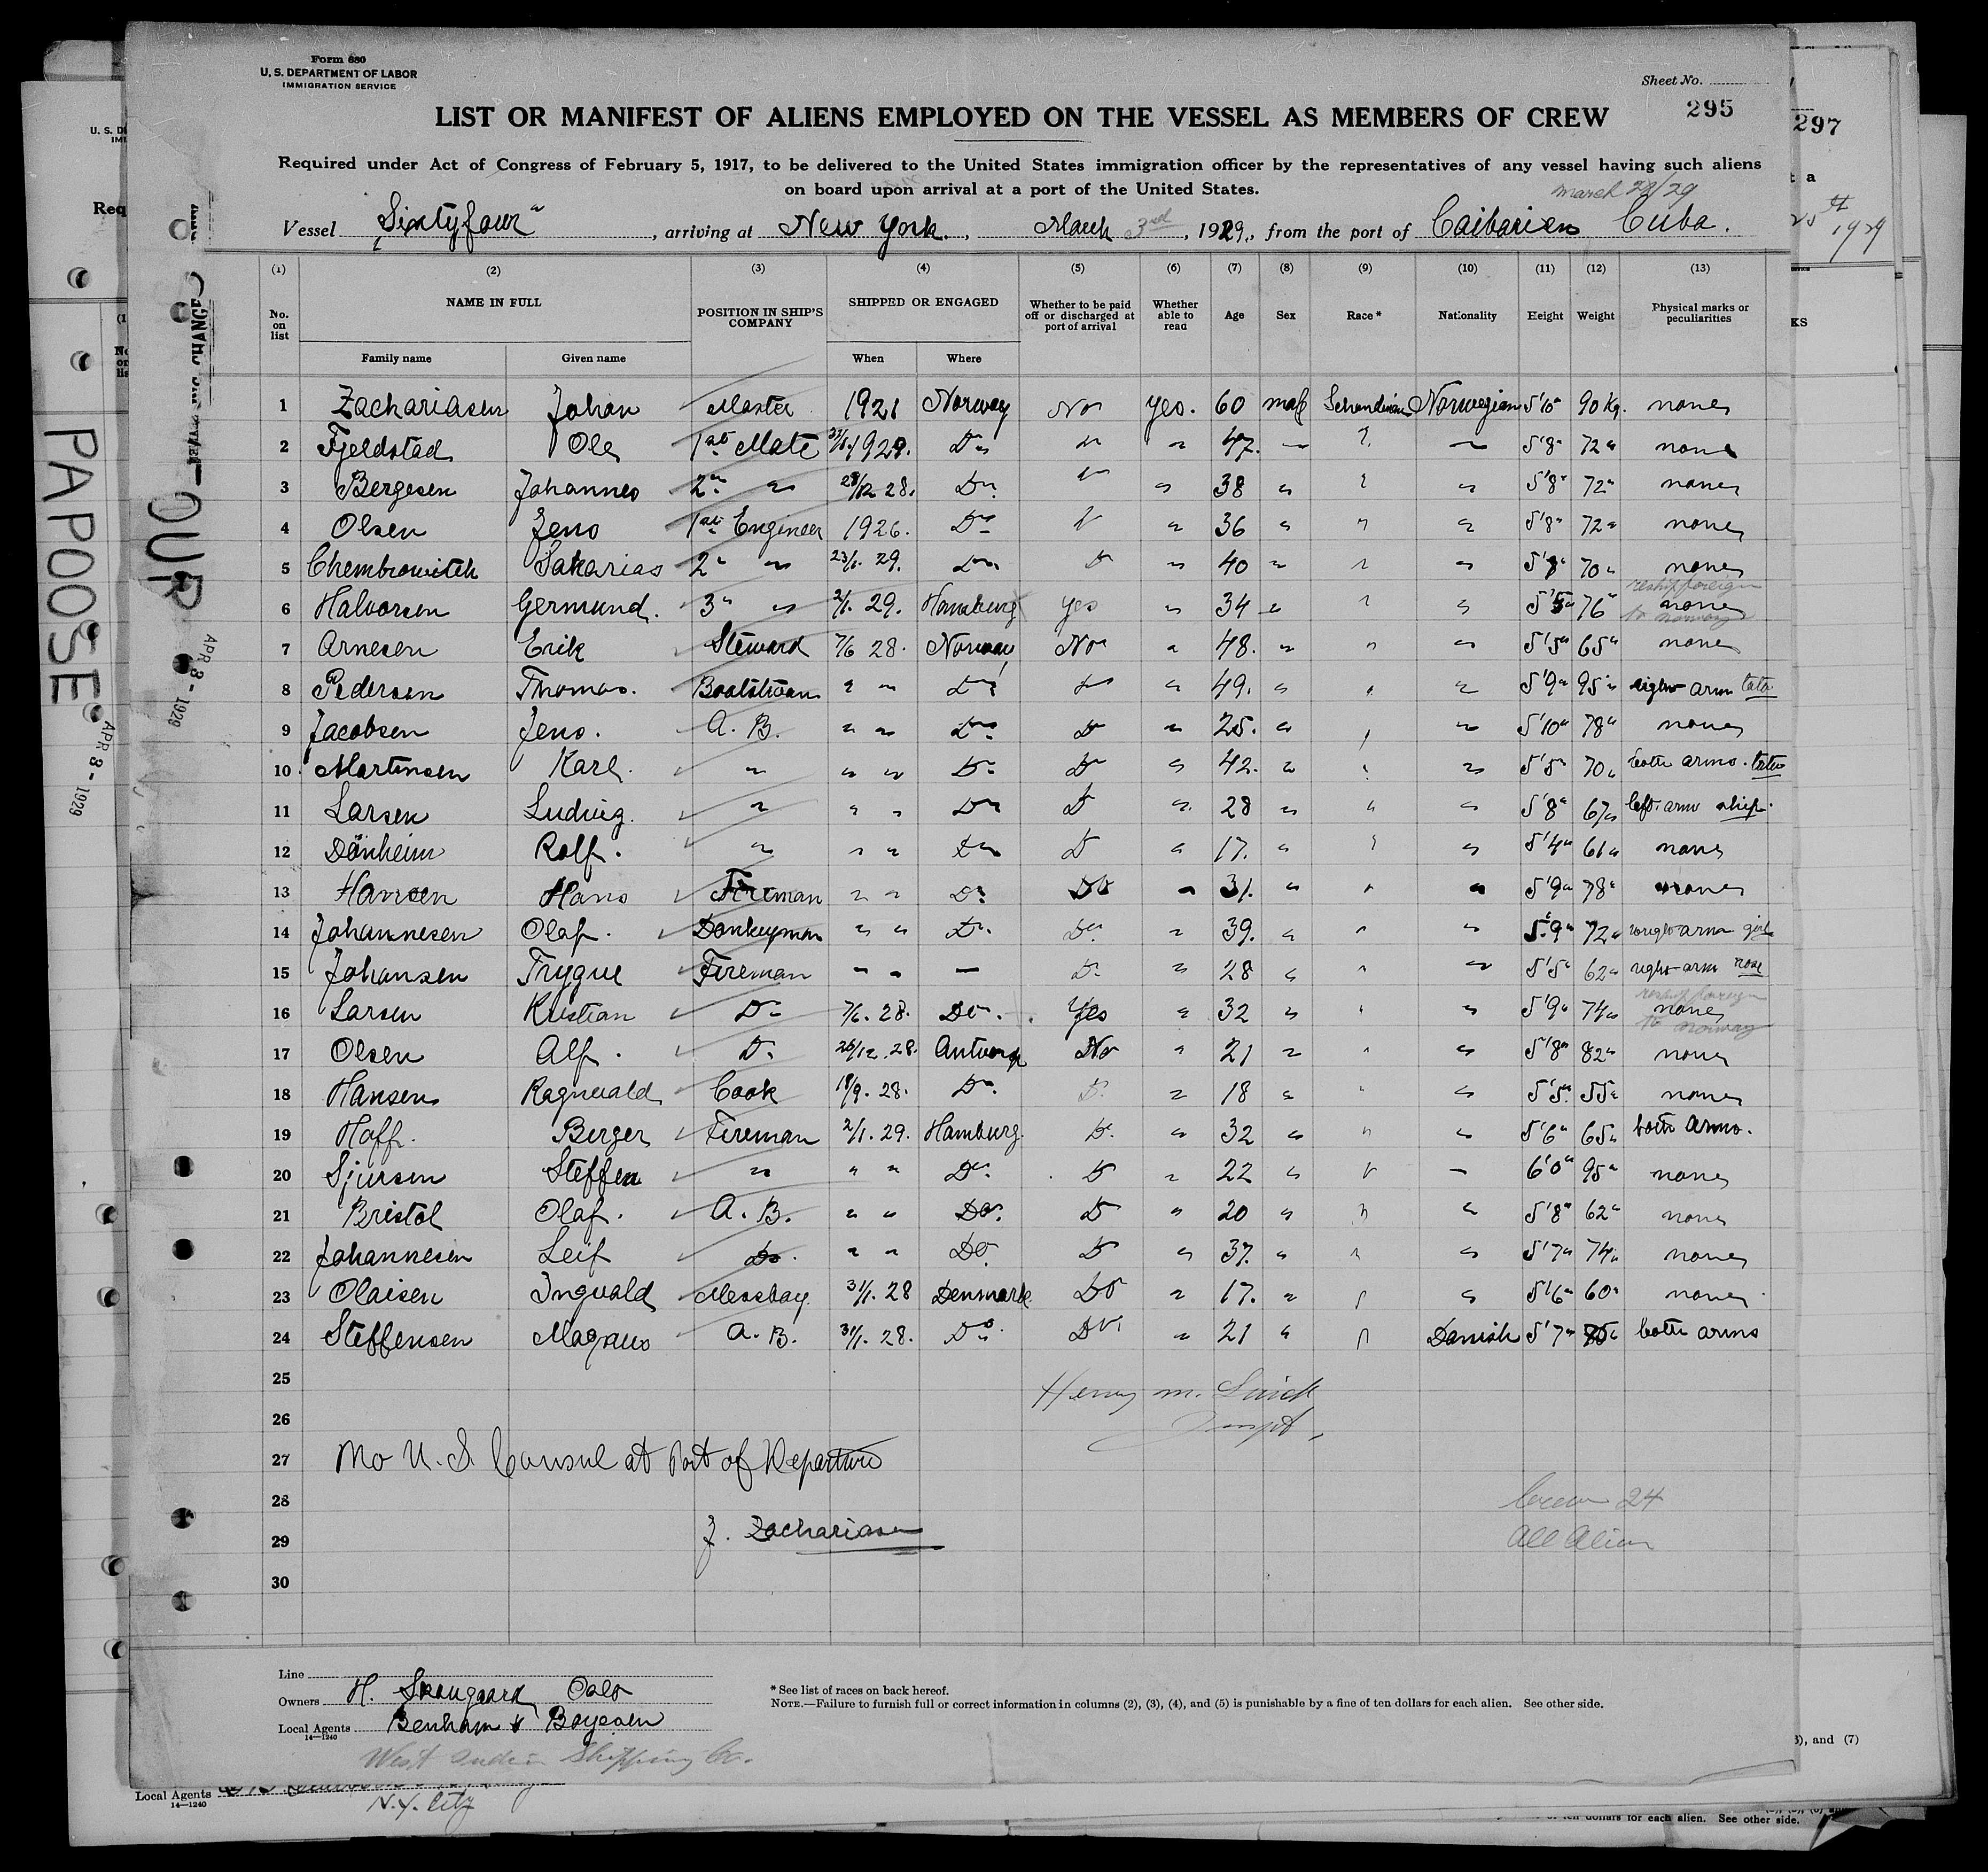 Form 680
U. S. DEPARTMENT OF LABOR
IMMIGRATION SERVICE
Sheet No.
295
LIST OR MANIFEST OF ALIENS EMPLOYED ON THE VESSEL AS MEMBERS OF CREW
Required under Act of Congress of February 5, 1917, to be delivered to the United States immigration officer by the representatives of any vessel having such aliens
on board upon arrival at a port of the United States.
Vessel Sixtyfour, arriving at New York., March 3rd, 1929, from the port of Caibarien Cuba.
(1) (2) (3) (4) (5) (6) (7) (8) (9) (10) (11) (12) (13)
No. on list NAME IN FULL POSITION IN SHIP'S COMPANY SHIPPED OR ENGAGED Whether to be paid off or discharged at port of arrival Whether able to read Age Sex Race* Nationality Height Weight Physical marks or peculiarities
Family name Given name When Where
1 Zachariasen Johan Master 1921 Norway No yes. 60 Norwegian 5'10" 90 Kg. none
2 Fjeldstad Ole 1st Mate 47. 5'8" 72 " none
3 Bergesen Johannes 2" " 28/12 28. Do 38 " 5'8" 72" none
4 Olsen Jens 1st Engineer 1926. Do 36 " 5'8" 72" none
5 Chembrowitch Sakarias 2" " 23/1. 29. Do 40 " 5'8" 70" none
reship foreign
6 Halvorsen Germund. 3" " 2/1. 29. Hamburg yes " 34 " 5'5" 76" none
to Norway
7 Arnesen Erik Steward 7/6 28. Norway No " 48. " 5'5" 65" none
8 Pedersen Thomas. Boatstwan " " Do Do " 49. " 5'9" 95" right arm tato
9 Jacobsen Jens. A. B. " " Do Do " 25. " 5'10" 78" none
10 Martinsen Karl. " " " Do Do " 42. " 5'5" 70" both arms. tatu
11 Larsen Ludvig. " " " Do Do " 28 " 5'8" 67" left arm ship.
12 Dönheim Rolf. " " " Do Do " 17. " 5'4" 61" none
13 Hansen Hans Fireman " " Do Do " 31. " 5'9" 78" none
14 Johannesen Olaf. Donkeyman " " Do. Do " 39. " 5'9" 72" arm girl
15 Johansen Trygve Fireman " " Do " 28 " 5'5" 62" right arm rose
reship foreign
16 Larsen Kristian Do 7/6. 28. Do. Yes " 32 " 5'9" 74" none
to Norway
17 Olsen Alf. Do. 28. Antwerp No " 21 " 5'8" 82" none
18 Hansen Ragnvald Cook 18/9. 28. Do. Do " 18 " 5'5" 55" none
19 Hoff. Berger Fireman 2/1. 29. Hamburg. Do. " 32 " 5'6" 65" both arms.
20 Sjursen Steffen " " " Do. Do " 22 " 6'0" 95" none
21 Bristol Olaf. A. B. " " Do. Do " 20 " 5'8" 62" none
22 Johannesen Leif Do. " " Do. Do " 37. " 5'7" 74" none
23 Olaisen Ingvald Messboy. 31/1. 28 Denmark Do " 17. " 5'6" 60" none
24 Steffensen Magnus A. B. 31/1. 28. Do. Do " 21 " Danish 5'7" both arms
25 Henry M.
26
27 No U. S. Consul at Port of Departure
28 Crew 24
29 J. Zachariasen All Alien
30
Line
Owners H. Skougaard Oslo
Local Agents Benham & Boyesen
14—1240
West Indian Shipping Co.
*See list of races on back hereof.
NOTE.—Failure to furnish full or correct information in columns (2), (3), (4), and (5) is punishable by a fine of ten dollars for each alien. See other side.
PAPOOSE
APR 3 - 1929
OUR
APR 3 - 1929
297
25th 1929
Local Agents
14—1240
N.Y. City
and (7)
ten dollars for each alien. See other side.